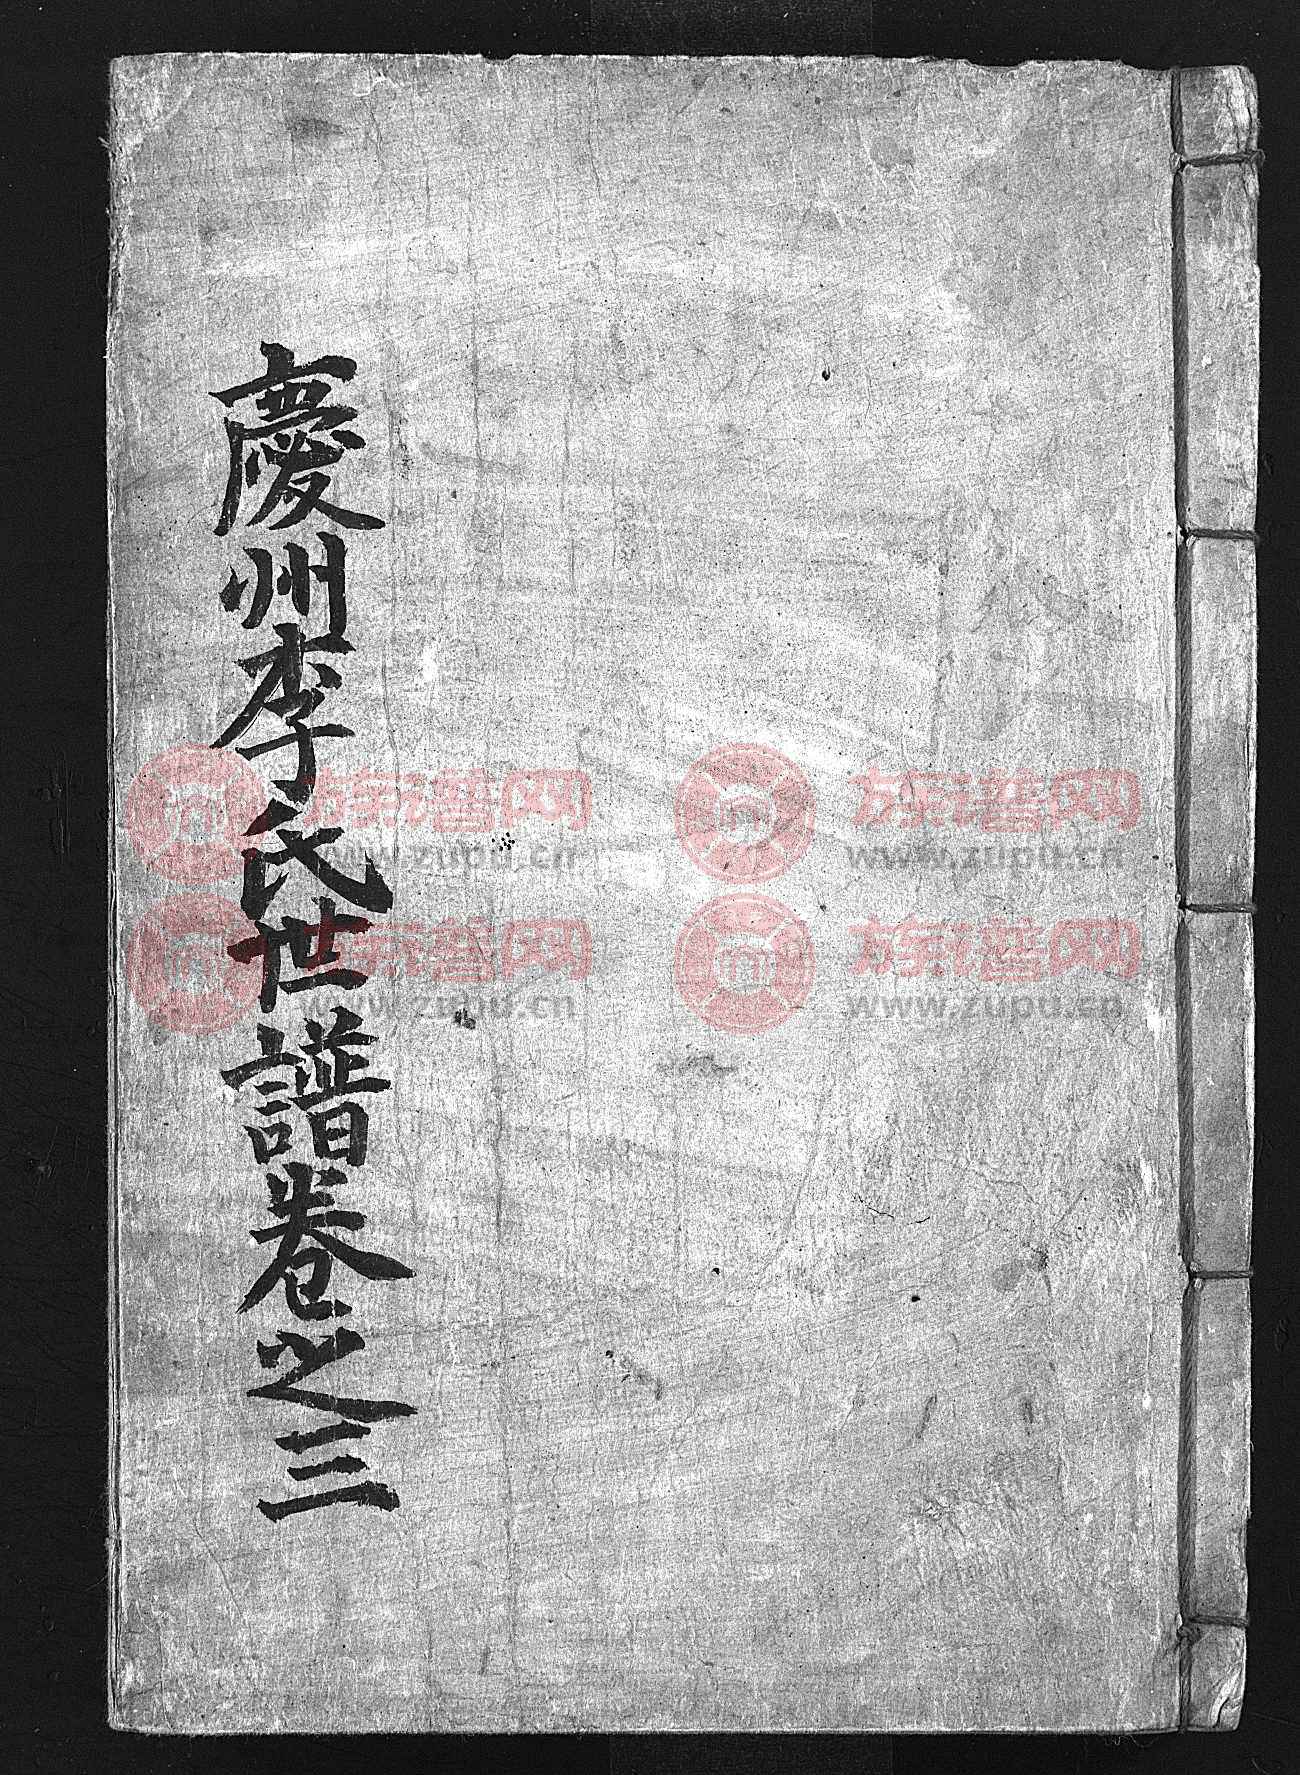 慶州李氏世譜卷之三
族谱网 族谱网
www.zupu.cn www.zupu.cn
族谱网 族谱网
www.zupu.cn www.zupu.cn